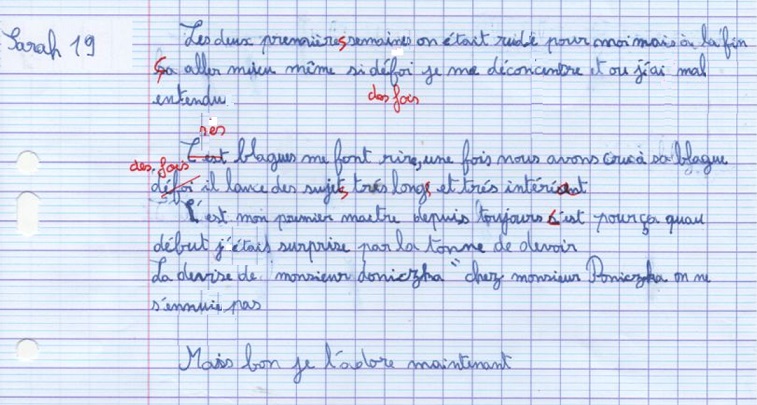 Sarah 19
Les deux premières semaines on était rude pour moi mais à la fin
ça aller mieu même si défoi je me déconcentre et ou j'ai mal
des fois
entendu
ses
C'est blagues me font rire, une fois nous avons cru à sa blague
des fois
défoi il lance des sujets très longs et très intérisent
C'est mon premier maetre depuis toujours c'est pour ça quau
début j'étais surprise par la tonne de devoir
La devise de "monsieur doniczka" chez monsieur Poniczka on ne
s'ennuie pas
Mais bon je l'adore maintenant